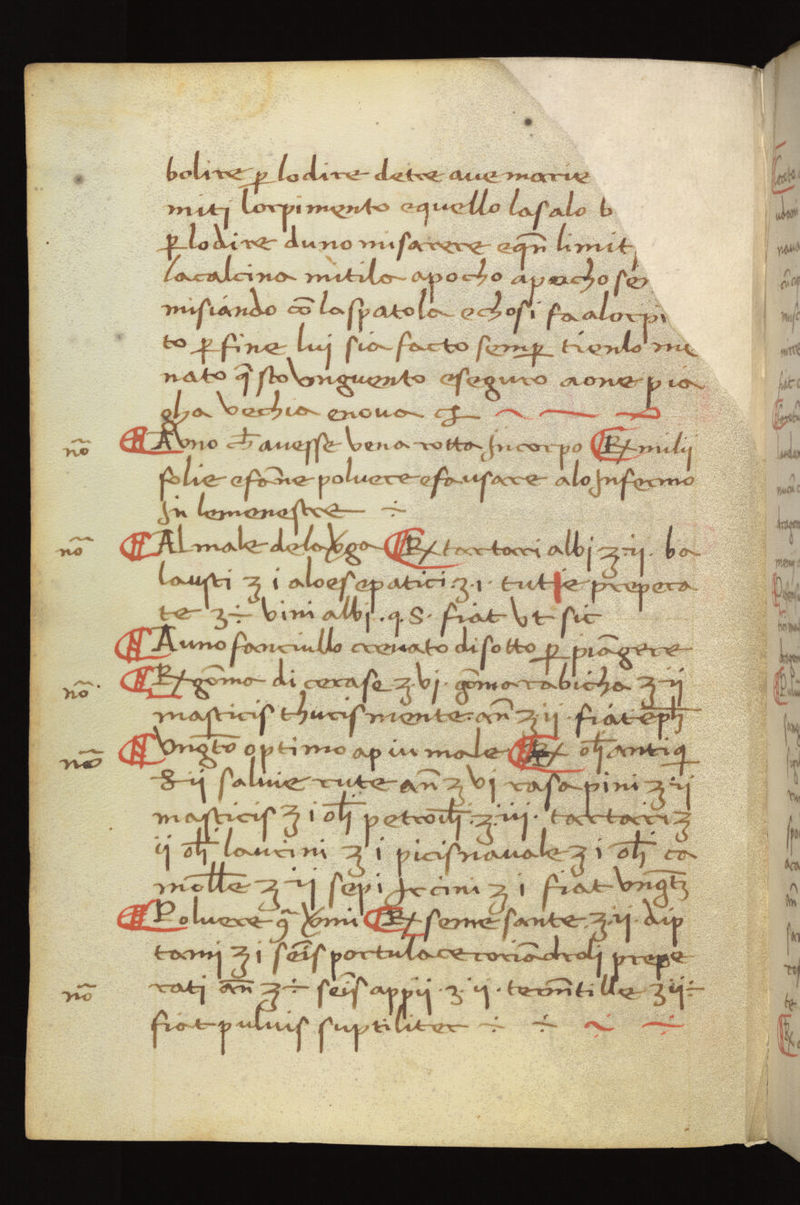 bolire p̱ lo dire de tre ave marie
mitj lorpimento e quello lasalo b
p̱ lo dire duno misarere e qn̄ li mit
la calcina mitila a pocho a pocho se
misiando cō la spatola e chosi fa alorpi
to p̱ fine luj sia facto semp̱ tienlo me
nato q̄sto vnguento e seguro a one p̱ ia
gha vechia e nova
nō A vno ch̄ avesse vena rotta in corpo ℞ milij
folie e fane polvere e fa usare alo infermo
in le menestre ÷
nō Al male de la ℞ tartari albj ʒ ij · ba
lausti ʒ i aloes epatici ʒ · i · tutie prepera
te ʒ ÷ vini albj · q · S · fiat vt sic
A uno fanciullo crevato di sotto p̱ piāgere
nō · ℞ gōma di cerase ʒ vj · gōma rabicha ʒ ij
masticis thuris mente · an̄ ʒ ij · fiat
nō Vngtō optimo ap iu male ℞ olī antiq
ij salvie rute an̄ ʒ vj rasa pini ʒ ij
masticis ʒ i olī petrolī · ʒ · iij · tartari ʒ
ij olī laurini ʒ i picis navale ʒ i olī ca
momille ʒ ij sepi ircini ʒ i fiat vngt
Polvere q̄ ℞ seme sante · ʒ ij · dip
tami ʒ i seīs portulace coriādroli prepe
nō rati an̄ ʒ ÷ seīs appij · ʒ · ij · termētille ʒ ij ÷
fiat pulvis suptiliter ÷ ÷